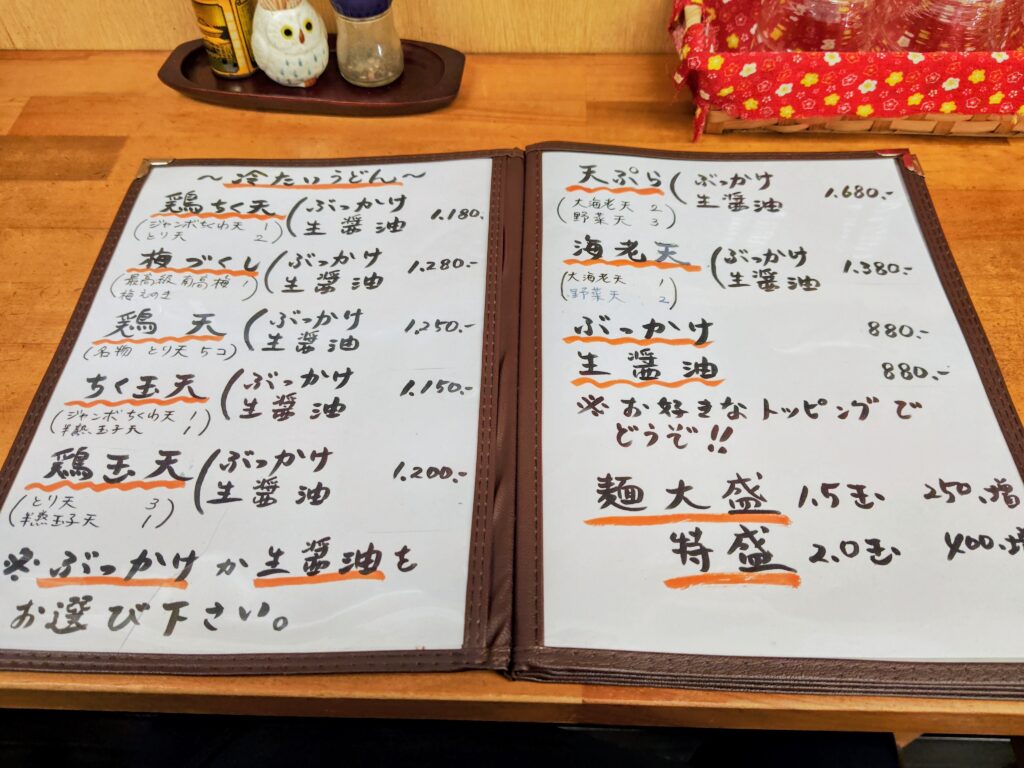 ～冷たいうどん～
鶏ちく天 (ぶっかけ 生醤油 1,180.-
(ジャンボちくわ天 1
とり天 2)
梅づくし (ぶっかけ 生醤油 1,280.-
(最高級南高梅 1
梅えのき)
鶏天 (ぶっかけ 生醤油 1,250.-
(名物 とり天 5コ)
ちく玉天 (ぶっかけ 生醤油 1,150.-
(ジャンボちくわ天 1
半熟玉子天 1)
鶏玉天 (ぶっかけ 生醤油 1,200.-
(とり天 3
半熟玉子天 1)
※ぶっかけか生醤油を
お選び下さい。
天ぷら (ぶっかけ 生醤油 1,680.-
(大海老天 2
野菜天 3)
海老天 (ぶっかけ 生醤油 1,380.-
(大海老天 1
野菜天 2)
ぶっかけ 880.-
生醤油 880.-
※お好きなトッピングで
どうぞ!!
麺大盛 1.5玉 250.増
特盛 2.0玉 400.増